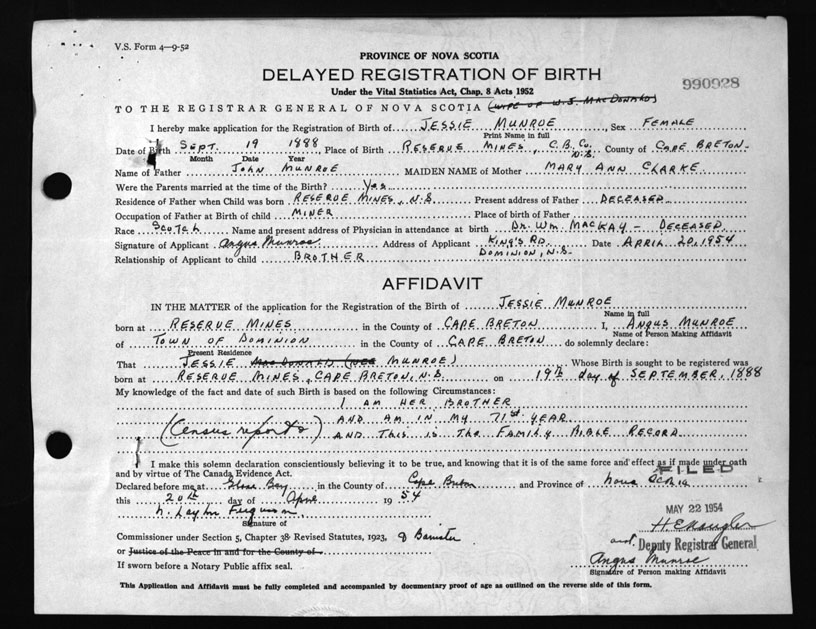 V.S. Form 4—9-52
PROVINCE OF NOVA SCOTIA
DELAYED REGISTRATION OF BIRTH
990928
Under the Vital Statistics Act, Chap. 8 Acts 1952
TO THE REGISTRAR GENERAL OF NOVA SCOTIA (WIFE OF W.J. MACDONALD)
I hereby make application for the Registration of Birth of JESSIE MUNROE, Sex FEMALE
Print Name in full
Date of Birth SEPT. 19 1888 Place of Birth RESERVE MINES, C.B. Co. N.S. County of CAPE BRETON
Month Date Year
Name of Father JOHN MUNROE MAIDEN NAME of Mother MARY ANN CLARKE
Were the Parents married at the time of the Birth? Yes
Residence of Father when Child was born RESERVE MINES, N.S. Present address of Father DECEASED
Occupation of Father at Birth of child MINER Place of birth of Father
Race SCOTCH Name and present address of Physician in attendance at birth DR. WM. MACKAY - DECEASED
Signature of Applicant Angus Munroe Address of Applicant KING'S RD. Date APRIL 20, 1954
Relationship of Applicant to child BROTHER DOMINION, N.S.
AFFIDAVIT
IN THE MATTER of the application for the Registration of the Birth of JESSIE MUNROE
Name in full
born at RESERVE MINES in the County of CAPE BRETON I, ANGUS MUNROE
Name of Person Making Affidavit
of TOWN OF DOMINION in the County of CAPE BRETON do solemnly declare:
Present Residence
That JESSIE MACDONALD (NEE MUNROE) Whose Birth is sought to be registered was
born at RESERVE MINES, CAPE BRETON, N.S. on 19th day of SEPTEMBER, 1888
My knowledge of the fact and date of such Birth is based on the following Circumstances:
I AM HER BROTHER
AND AM IN MY 71st YEAR
(Census reports) AND THIS IS THE FAMILY BIBLE RECORD
I make this solemn declaration conscientiously believing it to be true, and knowing that it is of the same force and effect as if made under oath
and by virtue of The Canada Evidence Act.
FILED
Declared before me at Glace Bay in the County of Cape Breton and Province of Nova Scotia
this 20th day of April 1954
MAY 22 1954
Signature of
Commissioner under Section 5, Chapter 38 Revised Statutes, 1923, Barrister
or Justice of the Peace in and for the County of
Deputy Registrar General
Angus Munroe
If sworn before a Notary Public affix seal.
Signature of Person making Affidavit
This Application and Affidavit must be fully completed and accompanied by documentary proof of age as outlined on the reverse side of this form.